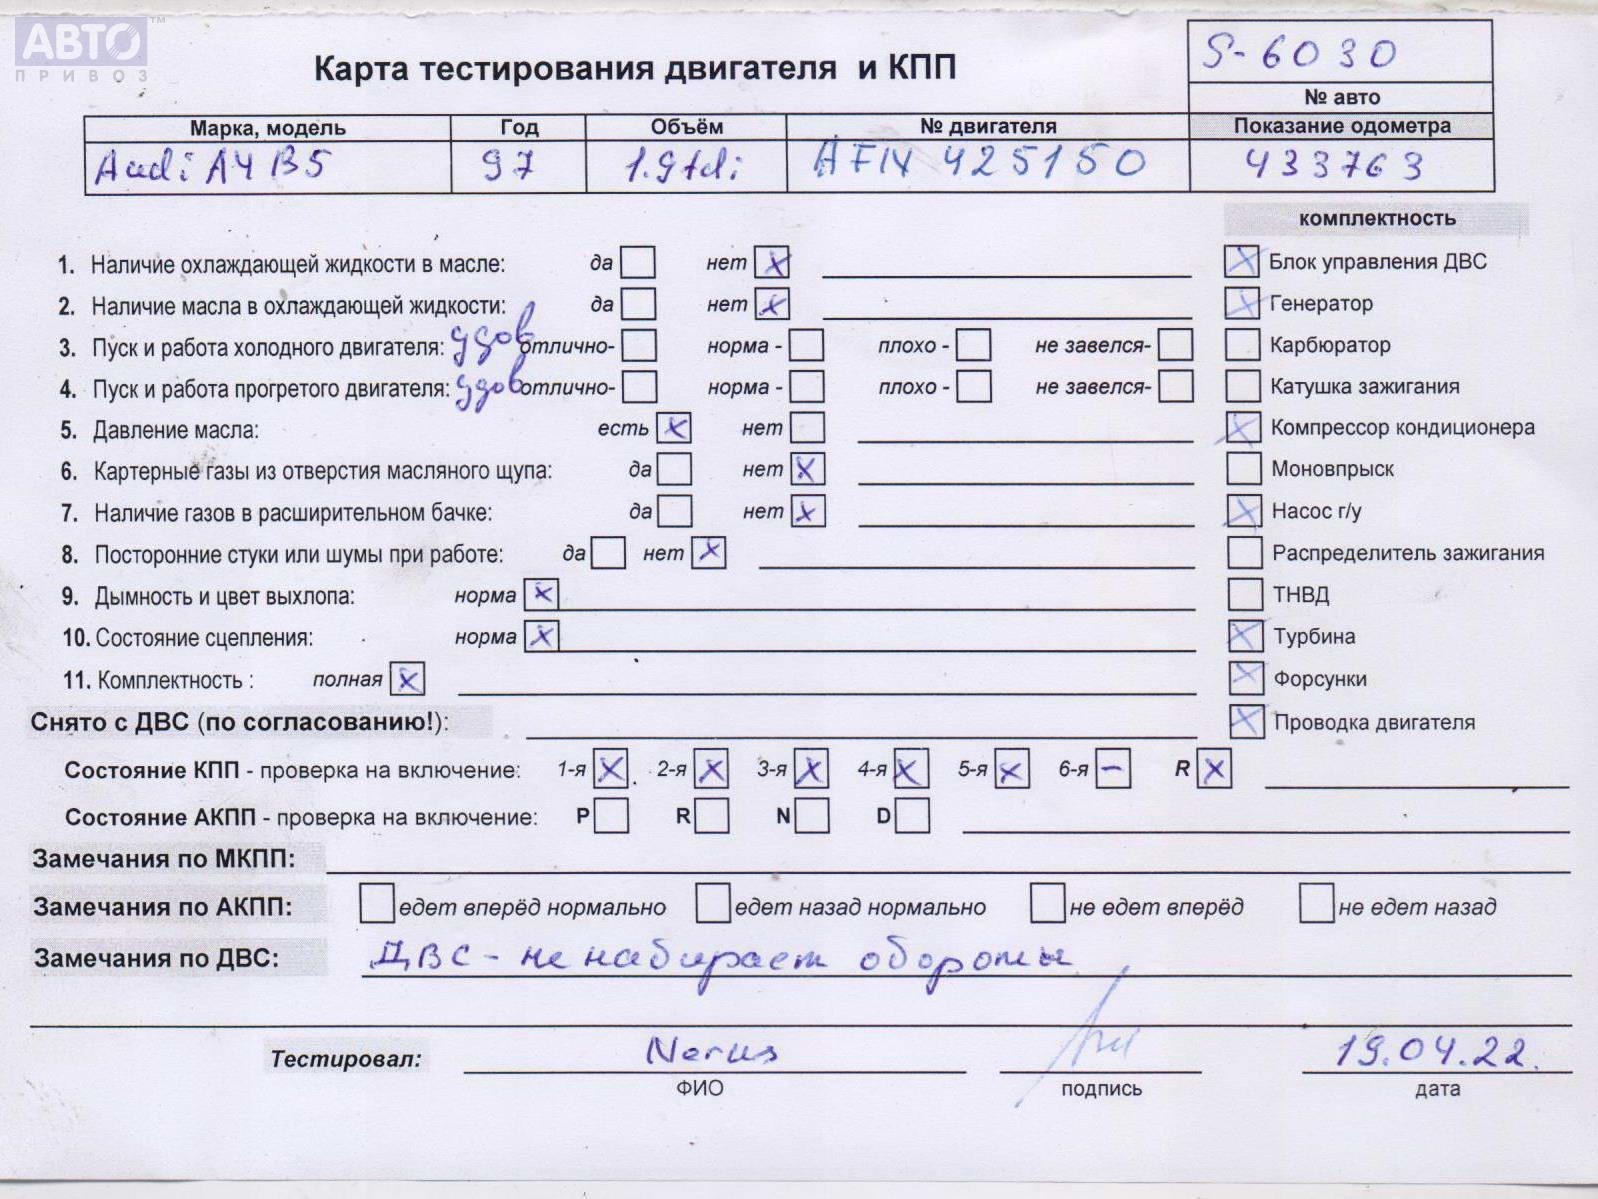 АВТО™
ПРИВОЗ
Карта тестирования двигателя и КПП
S-6030
№ авто
Марка, модель Год Объём № двигателя Показание одометра
Audi A4 B5 97 1.9tdi AFN 425150 433763
комплектность
1. Наличие охлаждающей жидкости в масле: да нет x Блок управления ДВС
2. Наличие масла в охлаждающей жидкости: да нет x Генератор
3. Пуск и работа холодного двигателя: удов отлично- норма - плохо - не завелся- Карбюратор
4. Пуск и работа прогретого двигателя: удов отлично- норма - плохо - не завелся- Катушка зажигания
5. Давление масла: есть x нет Компрессор кондиционера
6. Картерные газы из отверстия масляного щупа: да нет x Моновпрыск
7. Наличие газов в расширительном бачке: да нет x Насос г/у
8. Посторонние стуки или шумы при работе: да нет x Распределитель зажигания
9. Дымность и цвет выхлопа: норма x ТНВД
10. Состояние сцепления: норма x Турбина
11. Комплектность : полная x Форсунки
Снято с ДВС (по согласованию!): Проводка двигателя
Состояние КПП - проверка на включение: 1-я x 2-я x 3-я x 4-я x 5-я x 6-я – R x
Состояние АКПП - проверка на включение: P R N D
Замечания по МКПП:
Замечания по АКПП: едет вперёд нормально едет назад нормально не едет вперёд не едет назад
Замечания по ДВС: ДВС - не набирает обороты
Тестировал: 19.04.22.
ФИО подпись дата